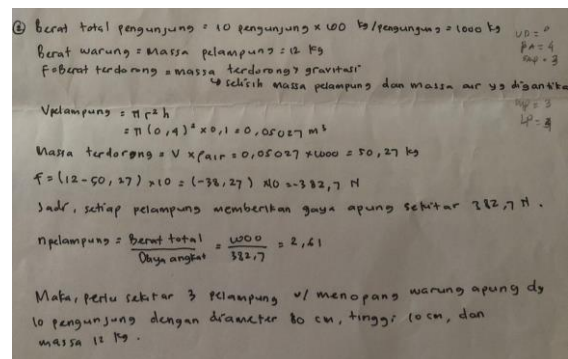 ② Berat total pengunjung = 10 pengunjung × 100 kg/pengunjung = 1000 kg
Berat warung = Massa pelampung = 12 kg
F = Berat terdorong = massa terdorong × gravitasi
↳ selisih massa pelampung dan massa air yg digantika
Vpelampung = π r² h
= π (0,4)² × 0,1 = 0,05027 m³
Massa terdorong = V × ρair = 0,05027 × 1000 = 50,27 kg
F = (12 - 50,27) × 10 = (-38,27) × 10 = -382,7 N
Jadi, setiap pelampung memberikan gaya apung sekitar 382,7 N.
npelampung = Berat total / Daya angkat = 1000 / 382,7 = 2,61
Maka, perlu sekitar 3 pelampung u/ menopang warung apung dg
10 pengunjung dengan diameter 80 cm, tinggi 10 cm, dan
massa 12 kg.
PA = 4
= 3
= 3
LP = 3